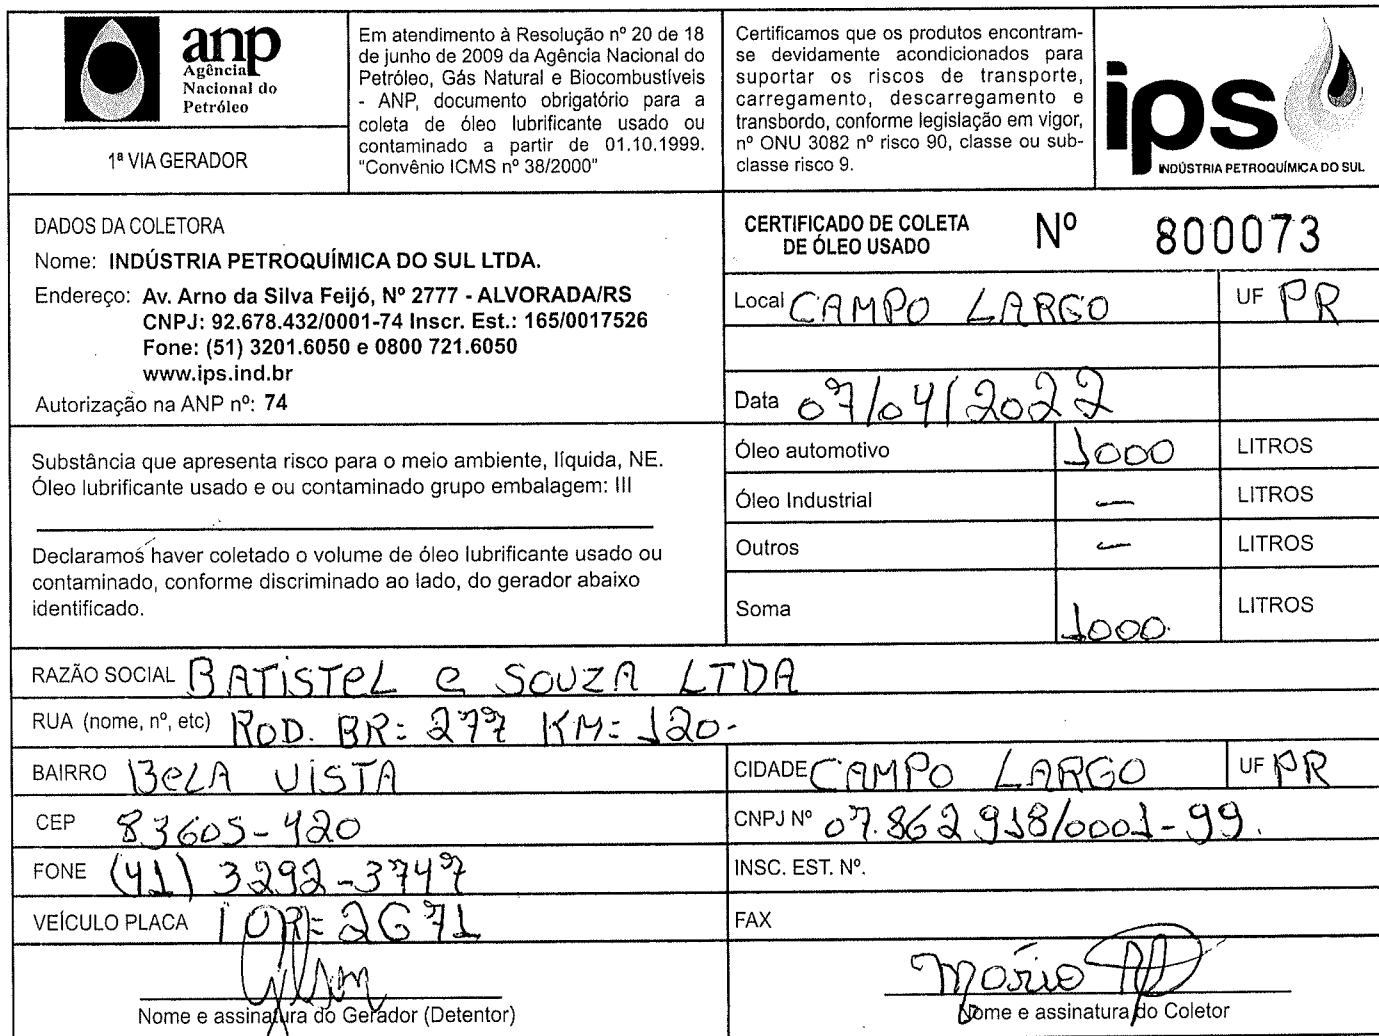 anp
Agência
Nacional do
Petróleo
1ª VIA GERADOR
Em atendimento à Resolução nº 20 de 18
de junho de 2009 da Agência Nacional do
Petróleo, Gás Natural e Biocombustíveis
- ANP, documento obrigatório para a
coleta de óleo lubrificante usado ou
contaminado a partir de 01.10.1999.
"Convênio ICMS nº 38/2000"
Certificamos que os produtos encontram-
se devidamente acondicionados para
suportar os riscos de transporte,
carregamento, descarregamento e
transbordo, conforme legislação em vigor,
nº ONU 3082 nº risco 90, classe ou sub-
classe risco 9.
ips
INDÚSTRIA PETROQUÍMICA DO SUL
DADOS DA COLETORA
Nome: INDÚSTRIA PETROQUÍMICA DO SUL LTDA.
Endereço: Av. Arno da Silva Feijó, Nº 2777 - ALVORADA/RS
CNPJ: 92.678.432/0001-74 Inscr. Est.: 165/0017526
Fone: (51) 3201.6050 e 0800 721.6050
www.ips.ind.br
Autorização na ANP nº: 74
CERTIFICADO DE COLETA
DE ÓLEO USADO
Nº 800073
Local CAMPO LARGO UF PR
Data 07/04/2022
Substância que apresenta risco para o meio ambiente, líquida, NE.
Óleo lubrificante usado e ou contaminado grupo embalagem: III
Declaramos haver coletado o volume de óleo lubrificante usado ou
contaminado, conforme discriminado ao lado, do gerador abaixo
identificado.
Óleo automotivo 1000 LITROS
Óleo Industrial — LITROS
Outros — LITROS
Soma 1000. LITROS
RAZÃO SOCIAL BATISTEL e SOUZA LTDA
RUA (nome, nº, etc) ROD. BR: 277 KM: 120-
BAIRRO BELA VISTA
CIDADE CAMPO LARGO UF PR
CEP 83605-420
CNPJ Nº 07.862 918/0001-99.
FONE (41) 3292-3747
INSC. EST. Nº.
VEÍCULO PLACA 2671
FAX
Nome e assinatura do Gerador (Detentor)
Mário
Nome e assinatura do Coletor